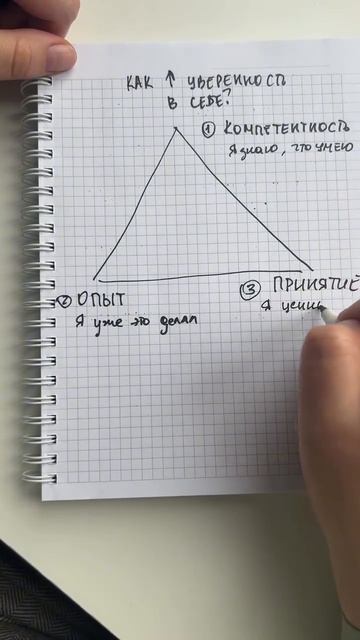 КАК ↑ УВЕРЕННОСТЬ
В СЕБЕ?
① КОМПЕТЕНТНОСТЬ
Я знаю, что умею
② ОПЫТ
Я уже это делал
③ ПРИНЯТИЕ
Я цени